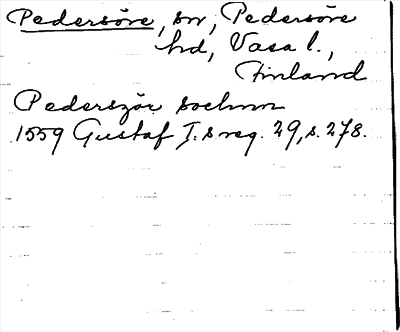 Pedersöre, sn, Pedersöre
hd, Vasa l.,
Finland
Pederszöre sochnn
1559 Gustaf I.s reg. 29, s. 278.